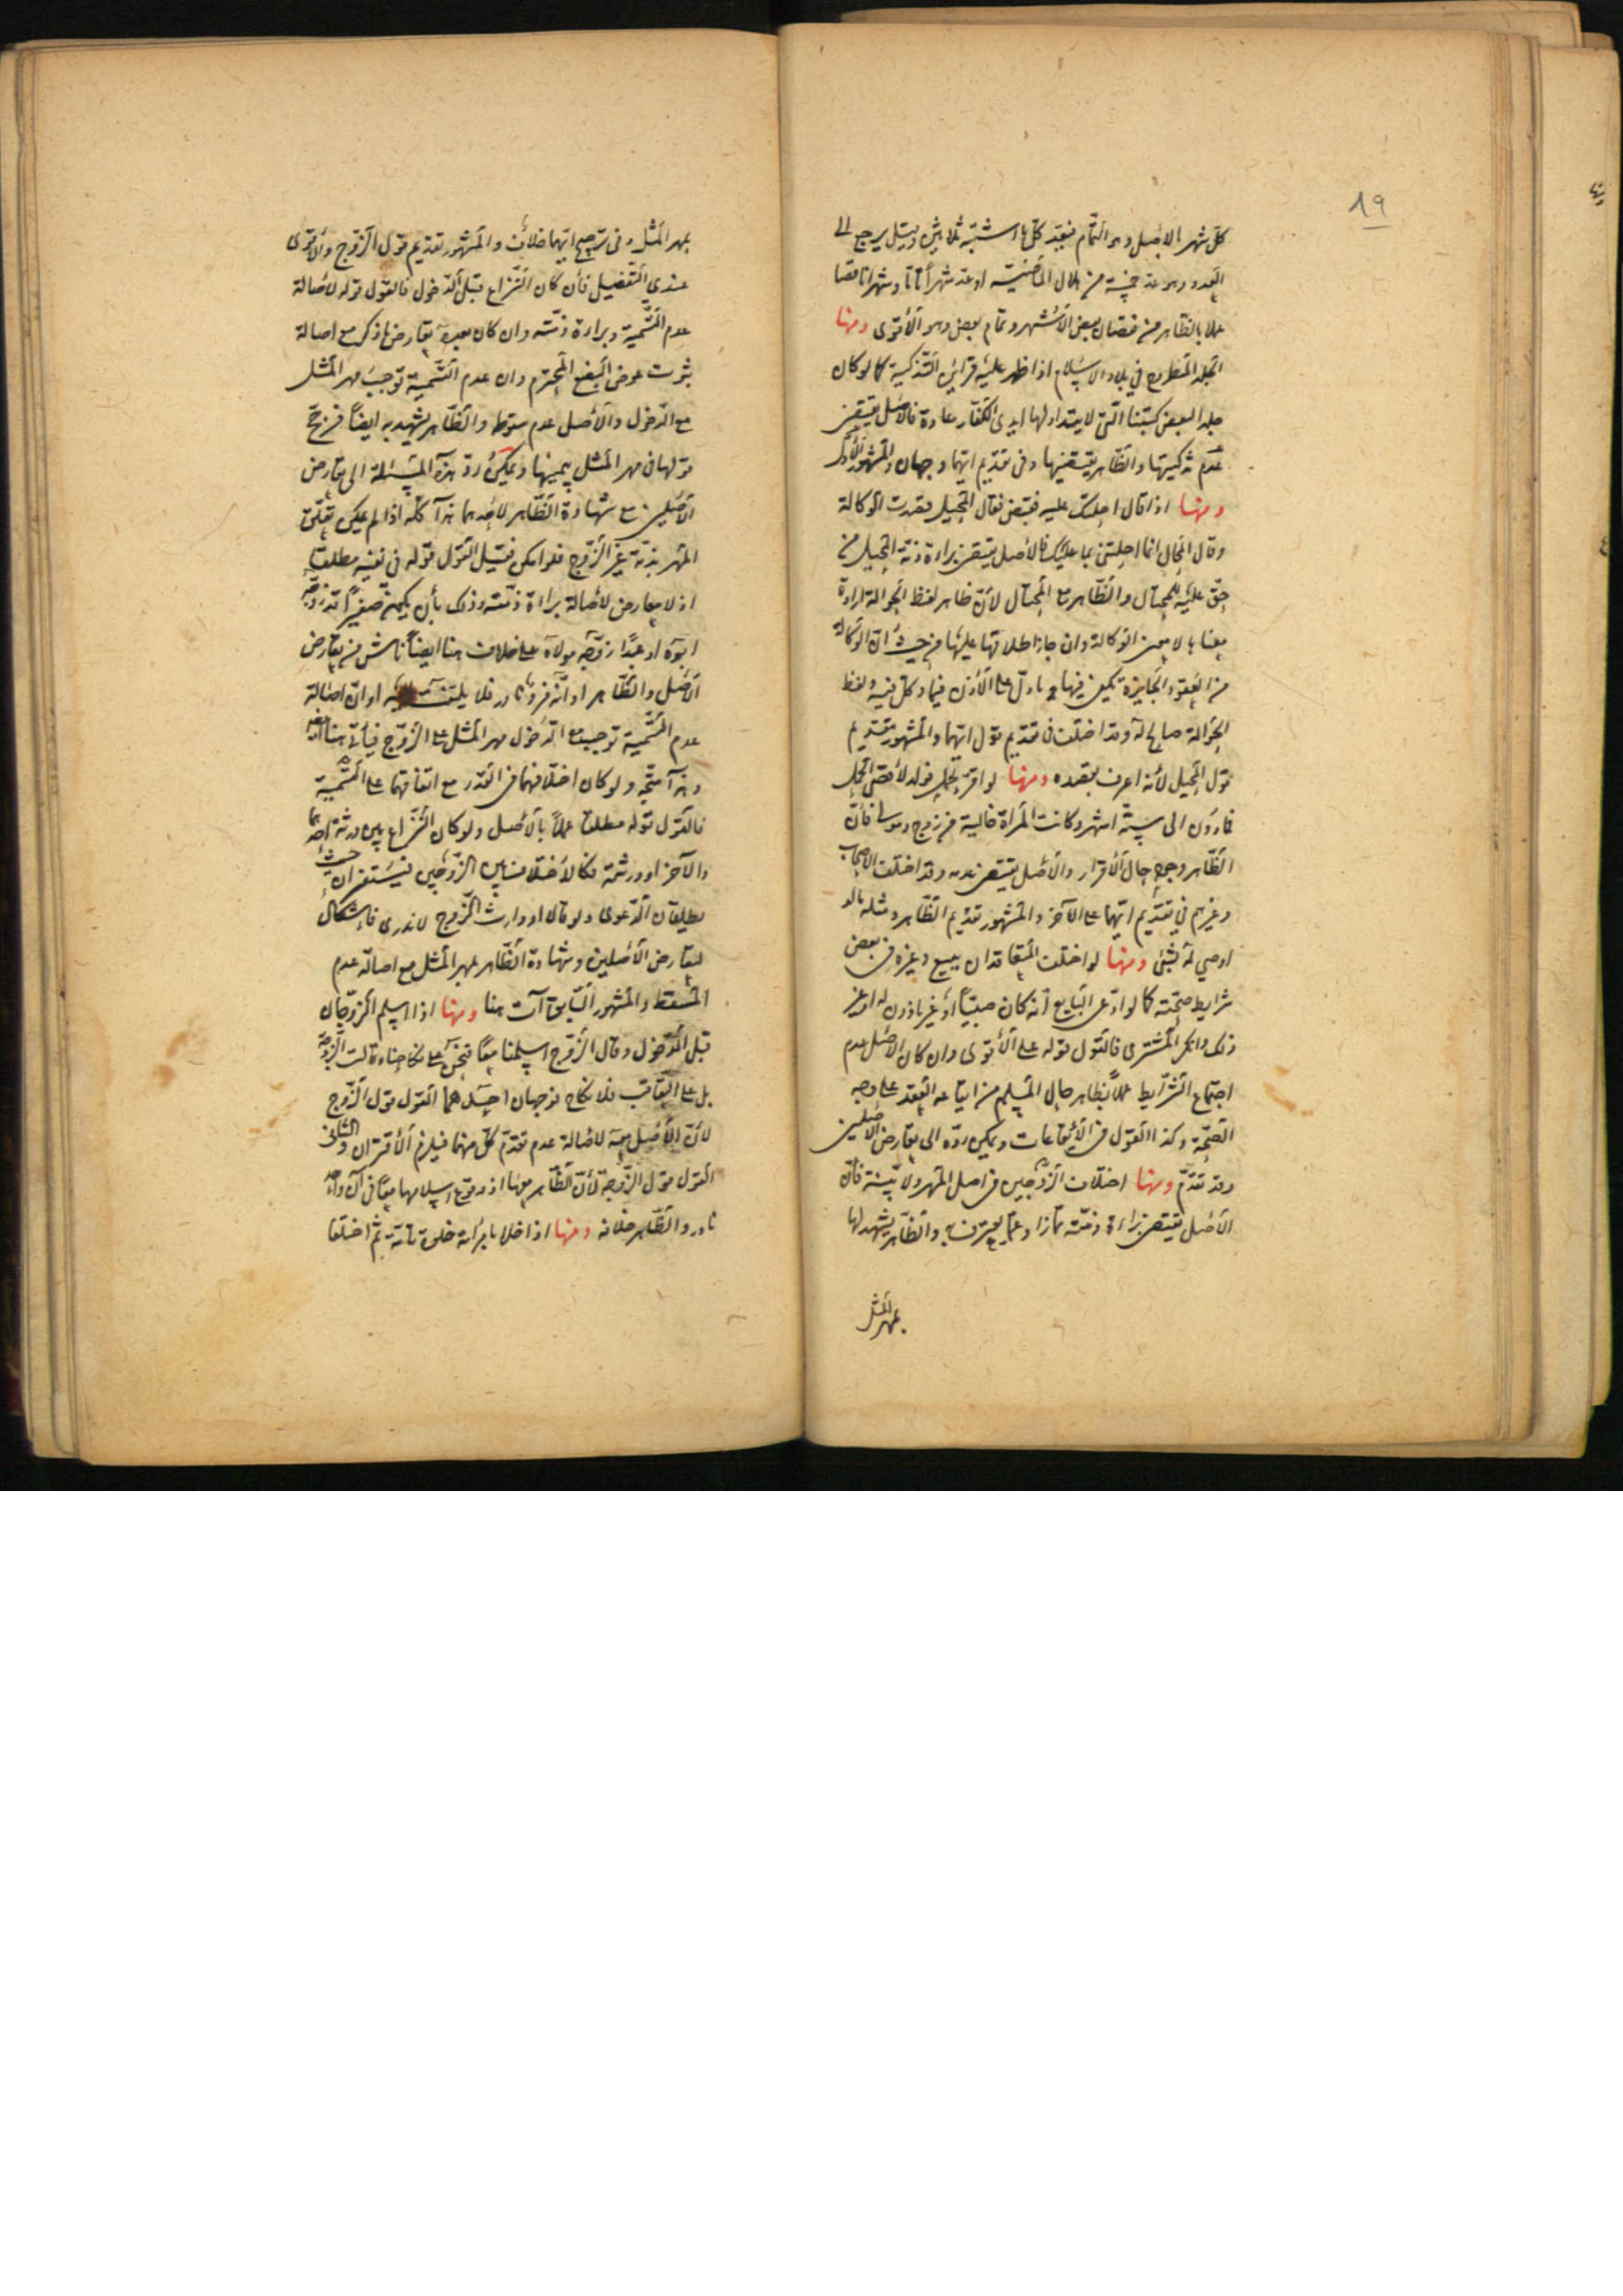 19
كلّ شهر الاصل وهو التمام فيعدّ كلّ ما اشتبه ثلاثين وقيل يرجع الى
العدد وهو عدّ خمسة من هلال الماضية او عدّ شهراً تامّا وشهرا ناقصا
عملا بالظّاهر من نقصان بعض الاشهر وتمام بعض وهو الأقوى ومنها
الجلد المطروح في بلاد الاسلام اذا ظهر عليه قراين التذكية كما لو كان
جلدا لبعض كتبنا الّتي لا يتداولها ايدي الكفّار عادة فالاصل يقتضي
عدم تذكيتها والظّاهر يقتضيها وفي تقديم ايّهما وجهان والمشهور الأوّل
ومنها اذا قال احلتك عليه فقبض فقال المحيل قصدت الوكالة
وقال المحال انما احلتني بما عليك فالاصل يقتضي براءة ذمّة المحيل من
حقّ عليه للمحتال والظّاهر مع المحتال لأنّ ظاهر لفظ الحوالة ارادة
معناها لا معنى الوكالة وان جاز اطلاقها عليها من حيث انّ الوكالة
من العقود الجايزة يكفي فيها ما دلّ على الأذن فيما وكلّ فيه ولفظ
الحوالة صالح له وقد اختلف في تقديم قول ايّهما والمشهور تقديم
قول المحيل لأنه اعرف بقصده ومنها لو اقرّ بحمل فولد لأقصى الحمل
فما دون الى ستّة اشهر وكانت المرأة خالية من زوج ومولى فانّ
الظّاهر وجوده حال الأقرار والأصل يقتضي عدمه وقد اختلف الاصحاب
وغيرهم في تقديم ايّهما على الآخر والمشهور تقديم الظّاهر ومثله ما لو
اوصي له بشئ ومنها لو اختلف المتعاقدان ببيع وغيره في بعض
شرايط صحّته كما لو ادّعى البايع أنّه كان صبيّاً أو غير ماذون له او غير
ذلك وانكر المشتري فالقول قوله على الأقوى وان كان الاصل عدم
اجتماع الشّرايط عملاً بظاهر حال المسلم من ايقاعه العقد على وجه
الصّحة وكذا القول في الأيقاعات ويمكن ردّه الى تعارض الاصلين
وقد تقدّم ومنها اختلاف الزّوجين في اصل المهر ولا بيّنة فانّ
الأصل يقتضي براءة ذمّته والظّاهر يشهد لها
بمهر المثل
بمهر المثل وفى ترجيح ايّهما خلاف والمشهور تقديم قول الزّوج والأقوى
عندي التّفصيل فأن كان النّزاع قبل الدّخول فالقول قوله لأصالة
عدم التّسمية وبراءة ذمّته وان كان بعده تعارض ما ذكر مع اصالة
ثبوت عوض البضع المحترم وان عدم التّسمية توجب مهر المثل
مع الدّخول والأصل عدم سقوطه والظّاهر يشهد به ايضاً فرجّح
قولها في مهر المثل بيمينها ويمكن ردّ هذه المسئلة الى تعارض
الأصلين مع شهادة الظّاهر لأحدهما هذا كلّه اذا لم يمكن تعلّق
المهر بذمّة غير الزّوج فلو امكن فقيل القول قوله في نفيه مطلقا
اذ لا معارض لأصالة براءة ذمّته وذلك بأن يكون صغيراً قد زوّجه
ابوه او عبدًا زوّجه مولاه على خلاف هنا ايضاً ناش من تعارض
الأصل والظّاهر او انّه فرد نادر فلا يلتفت اليه او انّ اصالة
عدم التّسمية توجب مع الدّخول مهر المثل على الزّوج فيأتي هنا ايضا
وهذا متّجه ولو كان اختلافهما في القدر مع اتفاقهما على التّسمية
فالقول قوله مطلقا عملاً بالأصل ولو كان النّزاع بين ورثة احدهما
والآخر او ورثته فكالأختلاف بين الزّوجين فيستفسران حيث
يطلقان الدّعوى ولو قال او وارث الزّوج لا ندري فإشكال
لتعارض الأصلين وشهادة الظّاهر بمهر المثل مع اصالة عدم
المسقط والمشهور السّابق آت هنا ومنها اذا اسلم الزّوجان
قبل الدّخول وقال الزّوج اسلمنا معًا فنحن على نكاحنا وقالت الزّوجة
بل على التّعاقب فلا نكاح فوجهان احدهما القول قول الزّوج
لأنّ الأصل معه لأصالة عدم تقدّم كلّ منهما فيلزم الأقتران والثاني
القول قول الزّوجة لأنّ الظّاهر معها اذ وقوع اسلامهما معًا في آن واحد
نادر والظّاهر خلافه ومنها اذا خلا بامرأته خلوة تامّة ثم اختلفا